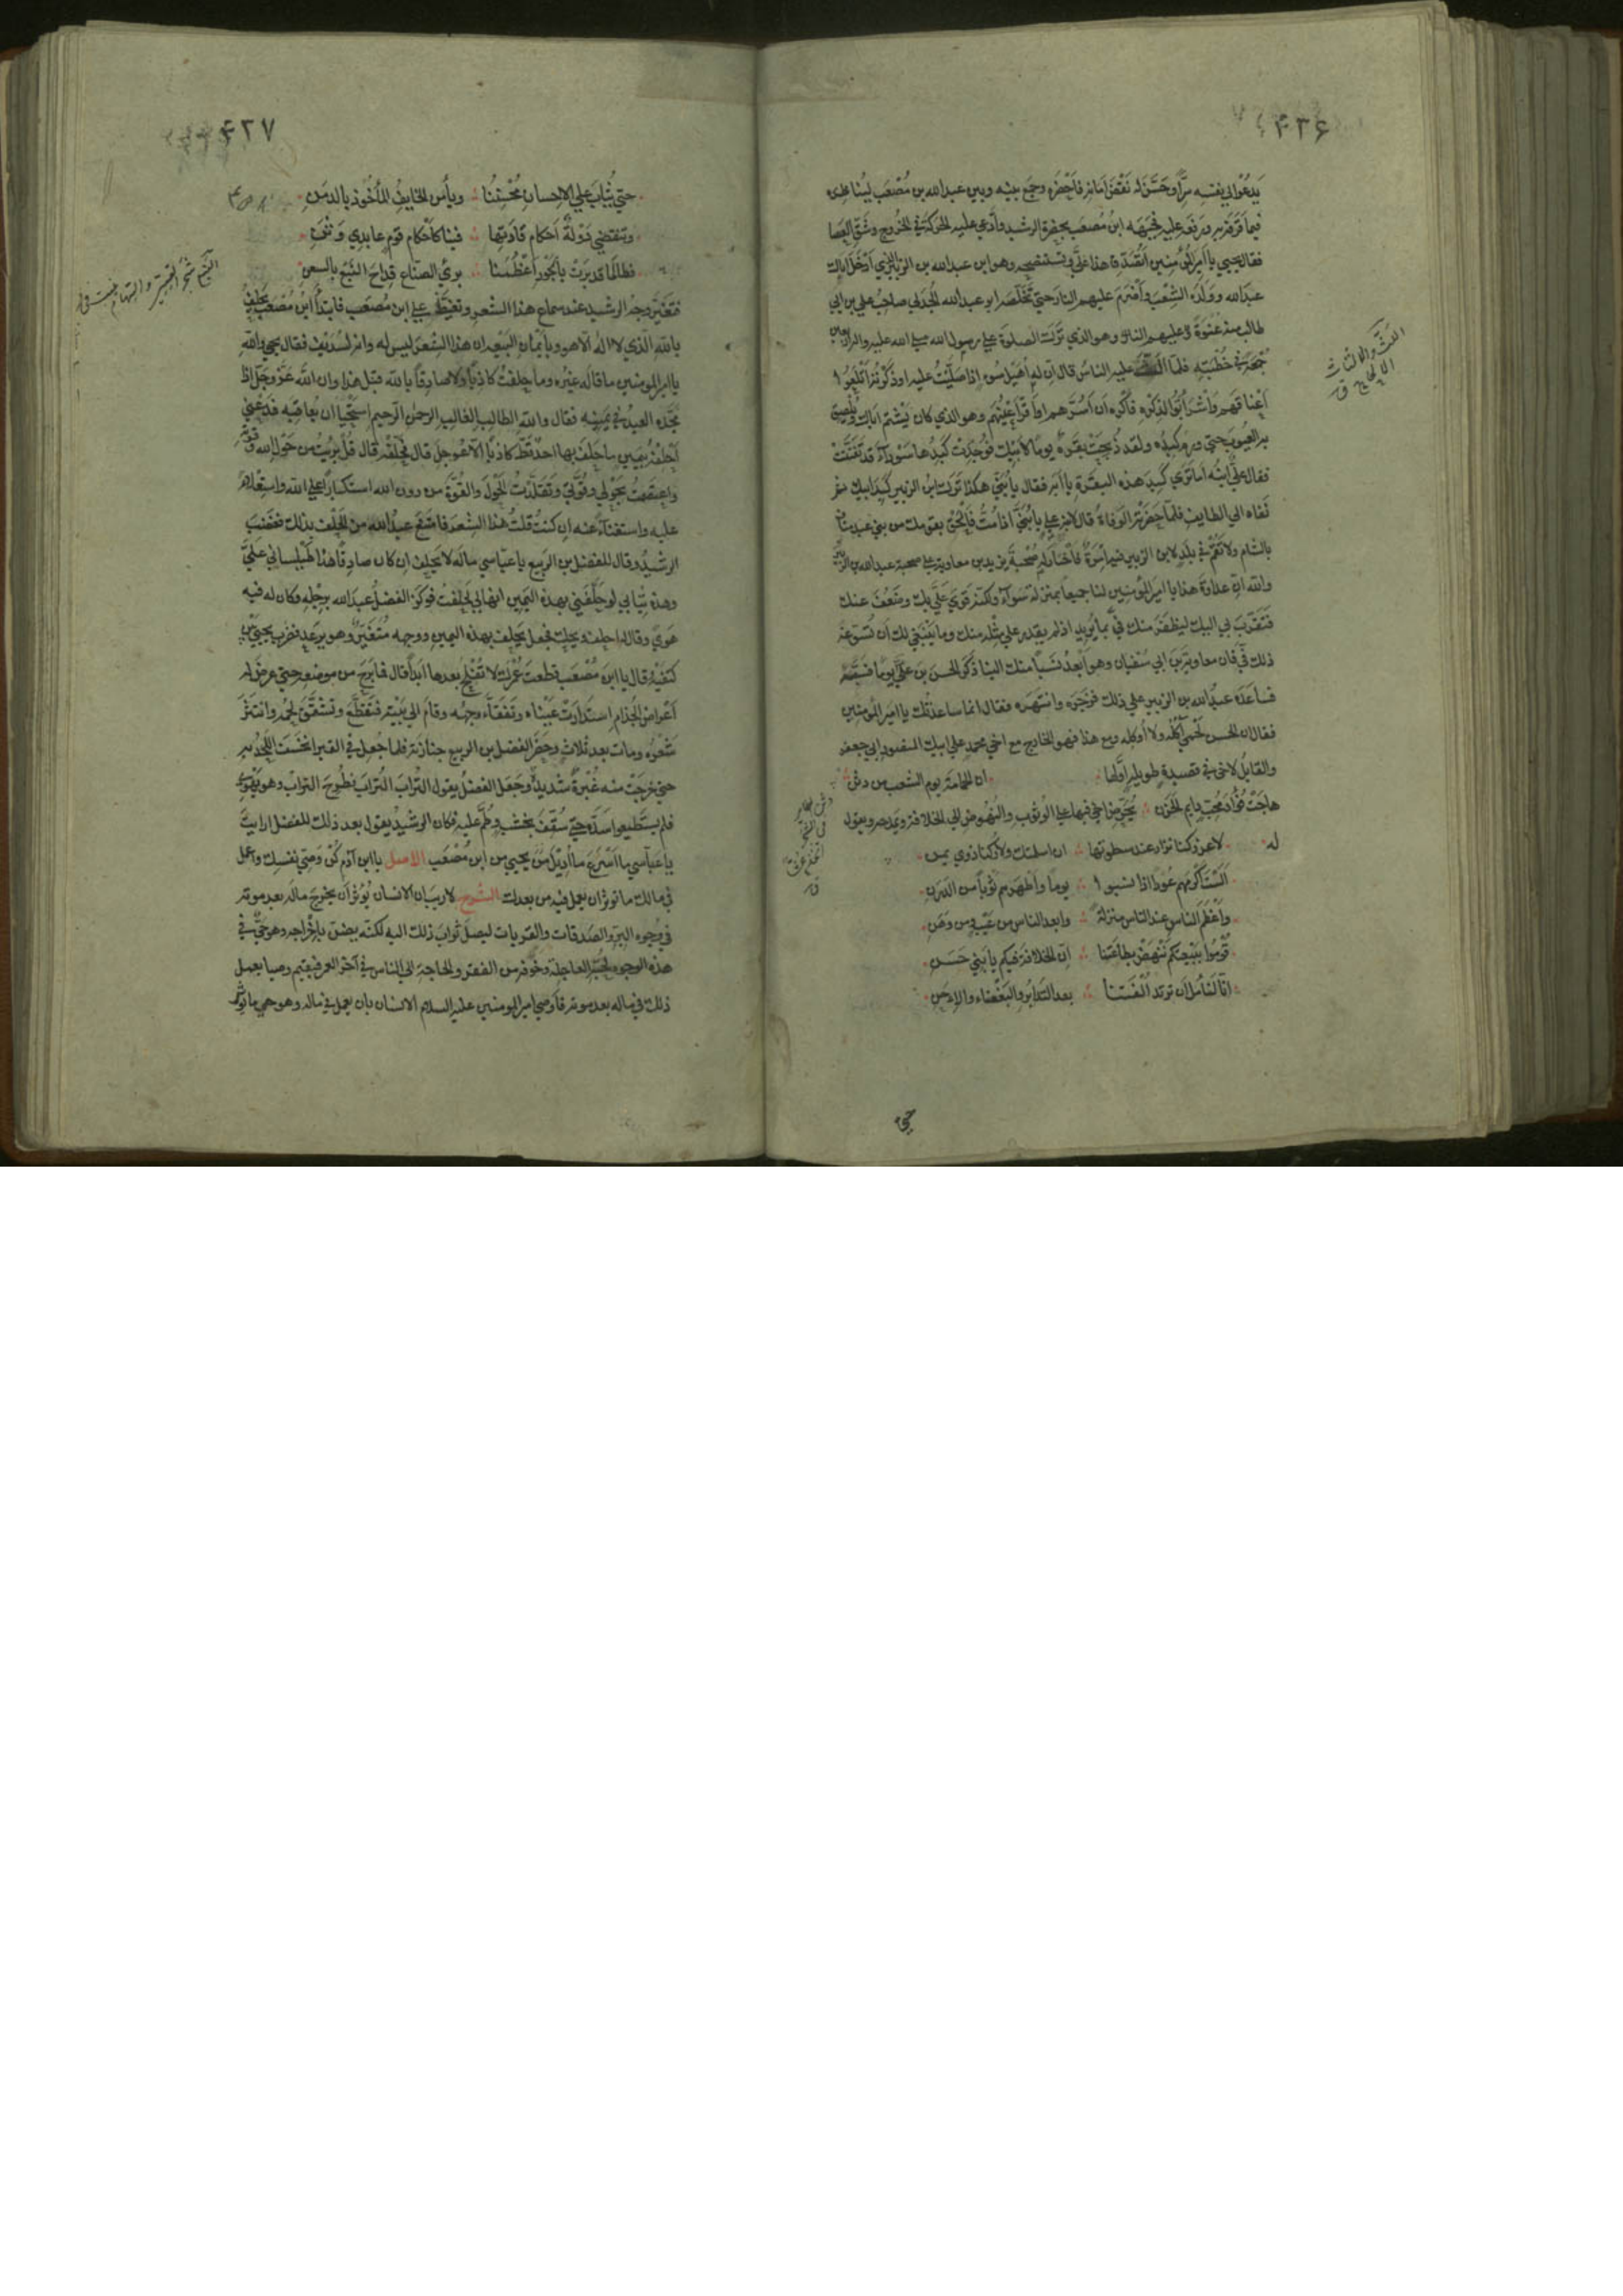 ۴۳۶
يَدعُوا لي نفسِه سِرًّا وحَسَّنَ لَه نَقْضَ اَمانِه فاَحْضَرَه وجمَع بينَه وبين عبد الله بن مُصْعَب ليُناظره
فيما قَرَفَه به ورَفَعَ عليه فجَبَهَه ابنُ مُصعَب بحضرة الرشيد وادّعي عليه الحركة في الخُروج وشَقّ العَصا
فقال يحيي يا اَميرَ المُؤمنين اَتُصَدّق هذا عليَّ وتستنصحه وهو ابن عبد الله بن الزبير الذي اَدْخَلَ اباك
عبدَ الله ووَلَدَه الشِّعْبَ واَضْرَمَ عليهم النارَ حتي تَخَلَّصَه ابو عبد الله الجُدَلي صاحبُ علي بن ابي
طالب منه عَنْوَةً وهو الذي تَرَكَ الصلوة علي رسول الله صلي الله عليه واله اربعين
جُمعَة في خُطْبَتِه فلمّا عليه الناسُ قال انّ له اُهَيْلَ سُوءٍ اذا صَلَّيْتُ عليه او ذَكَرْتُه اَتْلَعُوا
اَعْناقَهم واشْرَأَبُّوا لذكره فاَكْرَه اَن اَسُرَّهم او اَقِرَّ اَعْيُنَهم وهو الذي كان يَشْتِم اباك ويُلْصِق
به العيُوبَ حتي وَرِمَ كبِدُه ولقد ذُبِحَتْ بَقَرة يومًا لاَبيك فوُجِدَت كَبِدُها سَوْدآءَ قد تَفَتَّتَتْ
فقال عليٌّ ابنُه اَما تَري كَبِدَ هذه البقَرة يا اَبَه فقال يا بُنَيَّ هكذا تَرَك ابنُ الزبير كَبِدَ ابيك ثم
نَفاه الي الطايف فلمّا حضَرَتْه الوَفاةُ قال لابنه علي يا بُنَيَّ اذا مُتُّ فالْحَقْ بقومك من بني عبد مناف
بالشام ولا تُقِمْ في بلَدٍ لابن الزبير فيه اِمْرَةٌ فاَخْتارَ له صُحْبَةَ يزيد بن معاوية علي صحبة عبد الله بن الزبير
والله انّ عداوةَ هذا يا اميرَ المُؤمنين لنا جميعًا بمنزلة سَوآء ولكنّه قوي عَلَيَّ بك وضَعُفَ عنك
فتَقَرَّبَ بي اليك ليَظفَرَ منك فيَّ بما يُريد اذ لم يقدِر علي مثله منك وما يَنْبَغي لك اَن تُسَوّغه
ذلك فيَّ فان معاوية بن ابي سفيان وهو اَبْعدُ نَسَبًا منك الينا ذَكَر الحسن بن علي يومًا فسَبَّهُ
فساعَدَه عبدُ الله بن الزبير علي ذلك فزَجَره وانتَهَره فقال انّما ساعدتُك يا امير المُؤمنين
فقال ان الحسن لَحْمي آكُلُه ولا اُوكِله ومع هذا فهو الخارج مع اخي محمد علي ابيك المنصور ابي جعفر
والقايلُ لاخي في قصيدة طويلة اَوَّلُها ان الحمامَة يوم الشعب من دَثَن
هاجَتْ فُؤادَ مُحبٍّ دايم الحَزَن يُحَرِّض اخي فيها علي الوُثوب والنُّهوض الي الخلافة ويمدحه ويقول
له لا عزّ رُكنا نزار عند سطوتها ان اسلمتك ولا رُكنا ذوي يمن
اَلَسْتَ اَكْرَمَهم عُودًا اذا انتسبوا يومًا واَطْهَرَهم ثَوْبًا من الدَرَن
واَعْظَمَ الناسِ عند الناس منزلةً وابعد الناس من عَيْبٍ ومن وَهَن
قُومُوا ببَيْعتِكم نَنْهَضْ بطاعَتِنا اِنّ الخلافة فيكم يا بَني حَسَن
انّا لَنأمُل اَن ترتدّ اُلْفَتُنا بعد التدابُر والبَغضاء والاِحَن
حتي
۴۳۷
حتي يُثابَ علي الاِحسان مُحْسِنُنا ويأمن الخايفُ المأخُوذ بالدمن
وتنقضي دَوْلةٌ اَحكام قادَتها فينا كاَحْكام قَوم عابدي وَثَن
فطالما قد بَرَتْ بالجَوْر اَعْظُمَنا بَرْيَ الصنّاع قِداحَ النَبْع بالسفن
فتَغَيَّر وجهُ الرشيد عند سماع هذا الشعر وتغيَّظ علي ابن مُصعَب فابتدأ ابن مُصْعَب يَحلِفُ
بالله الذي لا اله الا هو وباَيْمان البَيْعة ان هذا الشعرَ ليس له وانه لسُدَيْف فقال يحيي والله
يا امير المومنين ما قاله غيْرُه وما حلفتُ كاذبًا ولا صادقًا بالله قبل هذا وان الله عَزّ وجَلّ اذا
مَجَّدَه العبدُ في يمينه فقال والله الطالبِ الغالبِ الرحمن الرحيم اِسْتَحْيا ان يُعاقبَه فدَعْني
اُحلِّفْه بيمين ما حلَفَ بها احدٌ قَطُّ كاذبًا الّا عُوجِلَ قال فحَلِّفْه قال قُل بَرِئْتُ من حَوْل الله وقوّته
واعتصَمتُ بحَوْلي وقُوَّتي وتقَلَّدْتُ الحَوْلَ والقُوَّةَ من دون الله استكبارًا علي الله واستِعْلاءً
عليه واستغناءً عنه ان كنتُ قلتُ هذا الشعرَ فامتَنَع عبدُ الله من الحَلْف بذلك فغَضبَ
الرشيدُ وقال للفضل بن الربيع يا عبّاسي ماله لا يَحلِف ان كان صادِقًا هذا طَيْلساني عَلَيَّ
وهذه ثيابي لو حلَّفَني بهذه اليَمين انها لي لَحلفتُ فوَكَزَ الفضلُ عبدَ الله برِجْلِه وكان له فيه
هَويً وقال له احلف ويحك فجعل يَحلف بهذه اليمين ووجهه مُتغَيِّرٌ وهو يرعَد فضرب يحيي بين
كتفَيْه وقال يا ابن مُصْعَب قطعتَ عُمْرك لا تُفْلِحُ بعدها ابدًا قال فما بَرِحَ من موضعه حتي عرض له
اَعْراض الجُذام اِستدارَتْ عَيْناه وتَفَقَّأَ وجهُه وقامَ الي بَيْته فتَقَطَّعَ وتشَقَّقَ لحمُه وانتَثَرَ
شَعْرُه ومات بعد ثلاثٍ وحضَر الفضل بن الربيع جنازته فلما جُعِل في القبر انخسَفَ اللَّحْدُ به
حتي خرجَتْ منه غُبْرةٌ شديدةٌ وجعَل الفضلُ يقول التُرابَ التُرابَ فطُرِحَ التراب وهو يَهْوي
فلم يستطيعوا سَدَّه حتي سُقِفَ بخشب وطُمَّ عليه فكان الرشيد يقول بعد ذلك للفضل ارايتَ
يا عباسي ما اَسْرَعَ ما اُديلَ يحيي من ابن مُصْعَب الاصل يا ابن آدم كُنْ وَصيَّ نفسِك واعمل
في مالك ما تُوثر ان يعمل فيه من بعدك الشرح لا ريبَ ان الانسان يُؤثر اَن يخرج ماله بعد موته
في وجوه البرّ والصدقات والقربات ليصل ثوابُ ذلك اليه لكنّه يضن باِخْراجه وهو حَيٌّ في
هذه الوجوه لحُبّه العاجلةَ وخوفه من الفقر والحاجة الي الناس في آخر العمر فيقيم وصيا يعمل
ذلك في ماله بعد موته فاَوصي امير المومنين عليه السلام الانسان بان يعمل في ماله وهو حي ما يؤثر